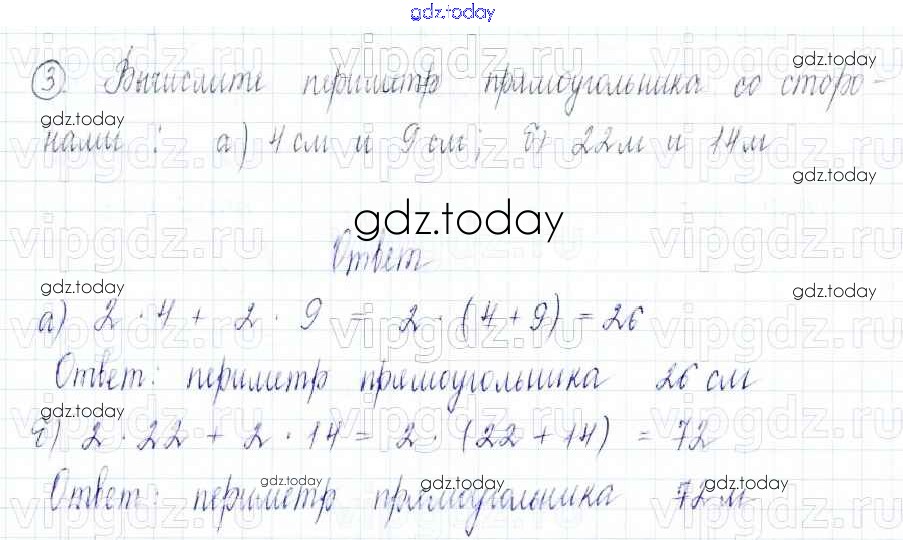 gdz.today
③ Вычислите периметр прямоугольника со сторо-
gdz.today
нами : а) 4 см и 9 см; б) 22 м и 14 м
gdz.today
gdz.today
Ответ
gdz.today
gdz.today
а) 2 · 4 + 2 · 9 = 2 · (4 + 9) = 26
Ответ: периметр прямоугольника 26 см
gdz.today
б) 2 · 22 + 2 · 14 = 2 · (22 + 14) = 72
gdz.today
gdz.today
gdz.today
Ответ: периметр прямоугольника 72 м
vipgdz.ru